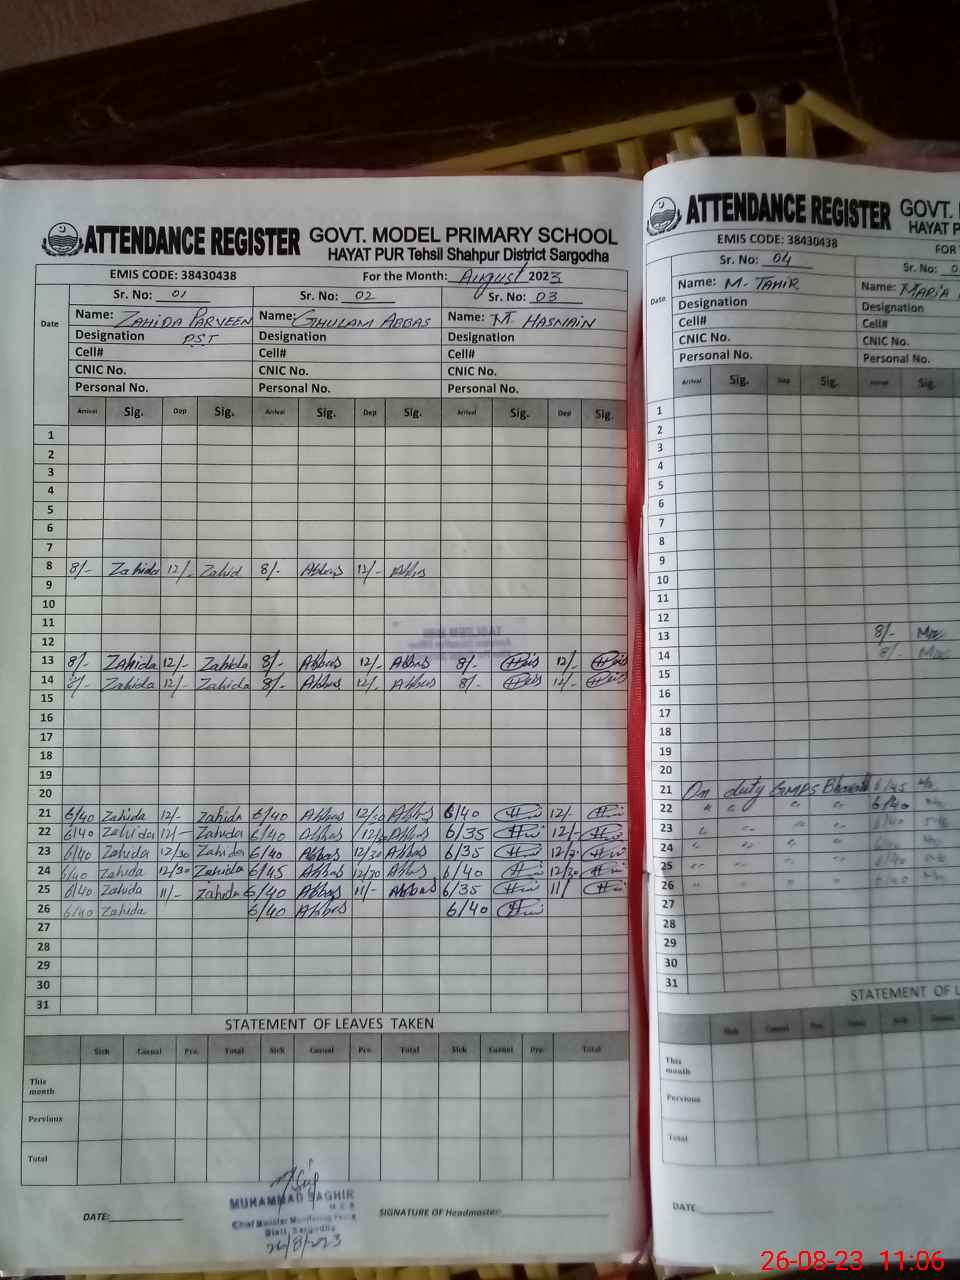 ATTENDANCE REGISTER GOVT. MODEL PRIMARY SCHOOL
HAYAT PUR Tehsil Shahpur District Sargodha
EMIS CODE: 38430438 For the Month: August 2023
Sr. No: 01 Sr. No: 02 Sr. No: 03
Date
Name: ZAHIDA PARVEEN Name: GHULAM ABBAS Name: M. HASNAIN
Designation PST Designation Designation
Cell# Cell# Cell#
CNIC No. CNIC No. CNIC No.
Personal No. Personal No. Personal No.
Arrival Sig. Dep Sig. Arrival Sig. Dep Sig. Arrival Sig. Dep Sig.
1
2
3
4
5
6
7
8 8/- Zahida 12/- Zahid 8/- Abbas 12/- Abbas
9
10
11
12
13 8/- Zahida 12/- Zahida 8/- Abbas 12/- Abbas 8/- 12/-
14 8/- Zahida 12/- Zahida 8/- Abbas 12/- Abbas 8/- 12/-
15
16
17
18
19
20
21 6/40 Zahida 12/- Zahida 6/40 Abbas 12/30 Abbas 6/40 12/-
22 6/40 Zahida 12/- Zahida 6/40 Abbas Abbas 6/35 12/-
23 6/40 Zahida 12/30 Zahida 6/40 Abbas 12/30 Abbas 6/35
24 6/40 Zahida 12/30 Zahida 6/45 Abbas 12/30 Abbas 6/40 12/30
25 6/40 Zahida 11/- Zahida 6/40 Abbas 11/- Abbas 6/35 11/
26 6/40 Zahida 6/40 Abbas 6/40
27
28
29
30
31
STATEMENT OF LEAVES TAKEN
Sick Casual Pre. Total Sick Casual Pre. Total Sick Casual Pre. Total
This month
Pervious
Total
MUHAMMAD SAGHIR
Chief Minister Monitoring Force
Distt. Sargodha
26/8/023
DATE: SIGNATURE OF Headmaster:
ATTENDANCE REGISTER GOVT.
HAYAT P
EMIS CODE: 38430438 FOR
Sr. No: 04 Sr. No:
Date
Name: M. TAHIR Name: MARIA
Designation Designation
Cell# Cell#
CNIC No. CNIC No.
Personal No. Personal No.
Arrival Sig. Dep Sig. Arrival Sig.
1
2
3
4
5
6
7
8
9
10
11
12
13 8/-
14 8/-
15
16
17
18
19
20
21 On duty GMPS 6/45
22 " " " " 6/40
23 " " " 6/40
24 " " " "
25 " " " " 6/40
26 " " " " 6/40
27
28
29
30
31
STATEMENT OF L
Sick Casual Pre. Total Sick Casual
This month
Pervious
Total
DATE:
26-08-23 11:06